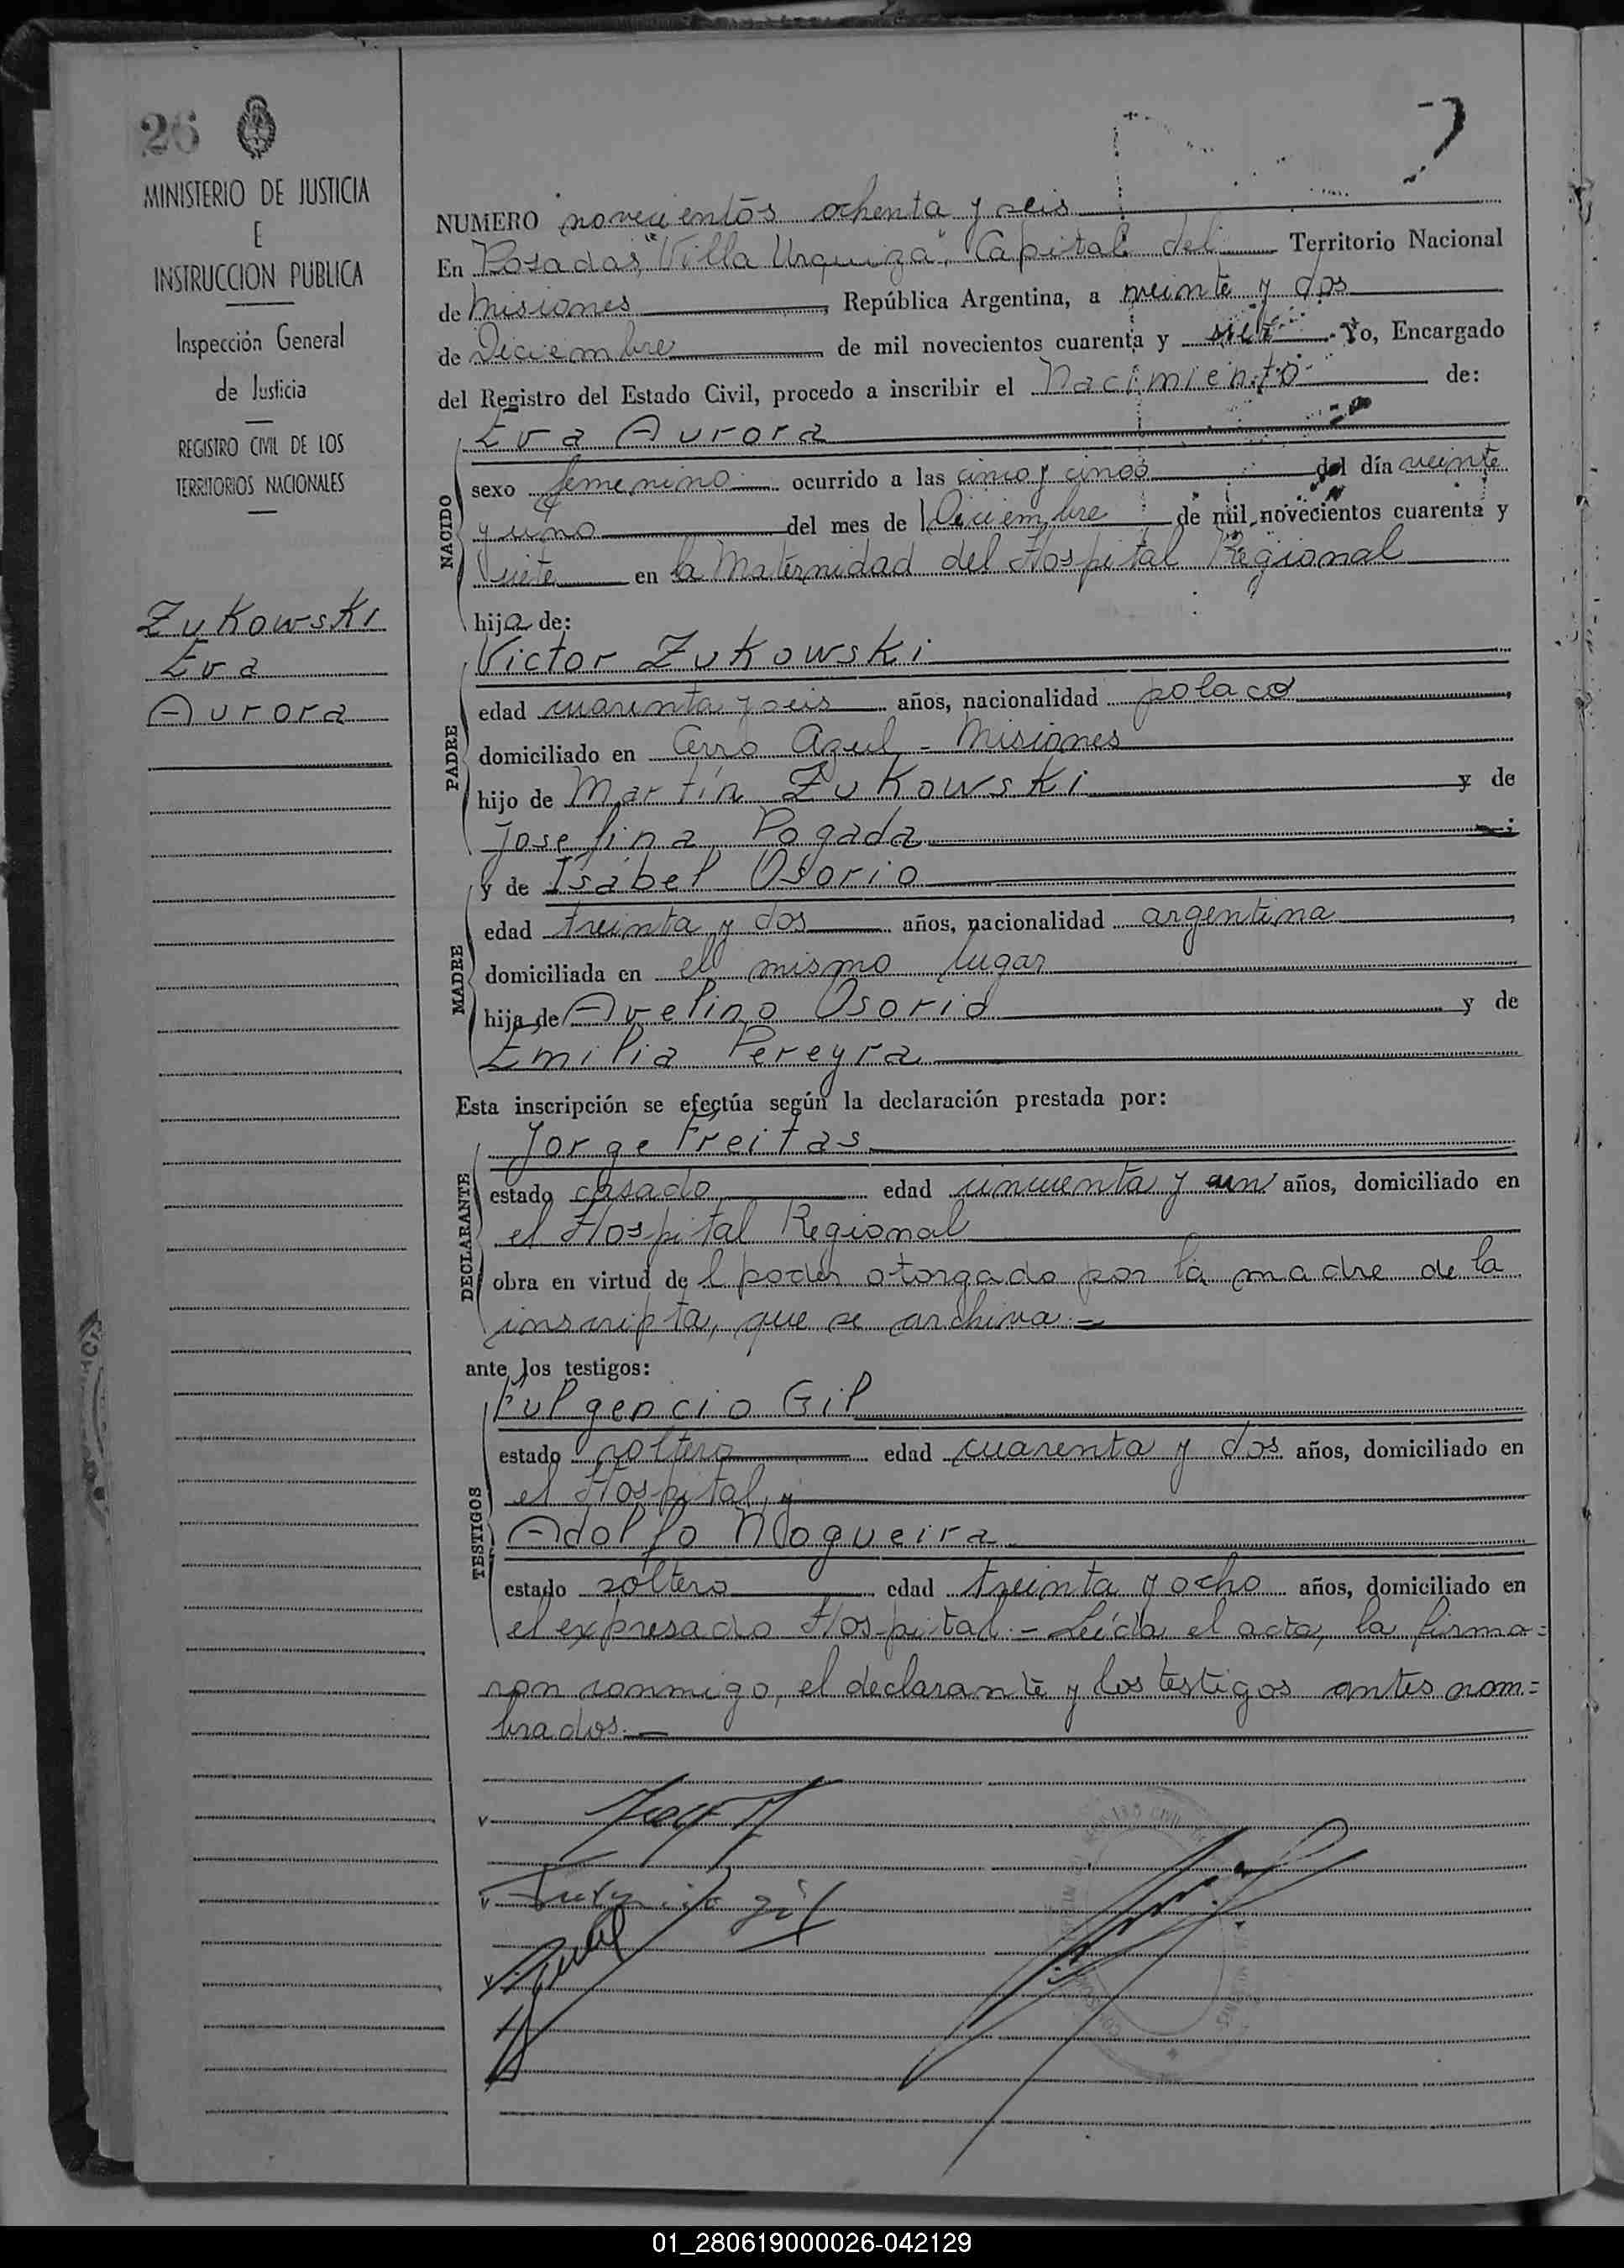 26
MINISTERIO DE JUSTICIA
E
INSTRUCCION PUBLICA
Inspección General
de Justicia
REGISTRO CIVIL DE LOS
TERRITORIOS NACIONALES
Zukowski
Eva
Aurora
NUMERO novecientos ochenta y seis
En Posadas, "Villa Urquiza", Capital del Territorio Nacional
de Misiones, República Argentina, a veinte y dos
de Diciembre de mil novecientos cuarenta y siete. Yo, Encargado
del Registro del Estado Civil, procedo a inscribir el Nacimiento de:
NACIDO
Eva Aurora
sexo femenino ocurrido a las cinco y cinco del día veinte
y uno del mes de Diciembre de mil novecientos cuarenta y
siete en la Maternidad del Hospital Regional
hija de:
PADRE
Victor Zukowski
edad cuarenta y seis años, nacionalidad polaco,
domiciliado en Cerro Azul - Misiones
hijo de Martín Zukowski y de
Josefina Pogada;
MADRE
y de Isabel Osorio
edad treinta y dos años, nacionalidad argentina,
domiciliada en el mismo lugar
hija de Avelino Osorio y de
Emilia Pereyra
Esta inscripción se efectúa según la declaración prestada por:
DECLARANTE
Jorge Freitas
estado casado edad cincuenta y un años, domiciliado en
el Hospital Regional
obra en virtud del poder otorgado por la madre de la
inscripta, que se archiva.-
ante los testigos:
TESTIGOS
Fulgencio Gil
estado soltero edad cuarenta y dos años, domiciliado en
el Hospital, y
Adolfo Nogueira
estado soltero edad treinta y ocho años, domiciliado en
el expresado Hospital.- Leída el acta, la firma=
ron conmigo, el declarante y los testigos antes nom=
brados.-
01_280619000026-042129